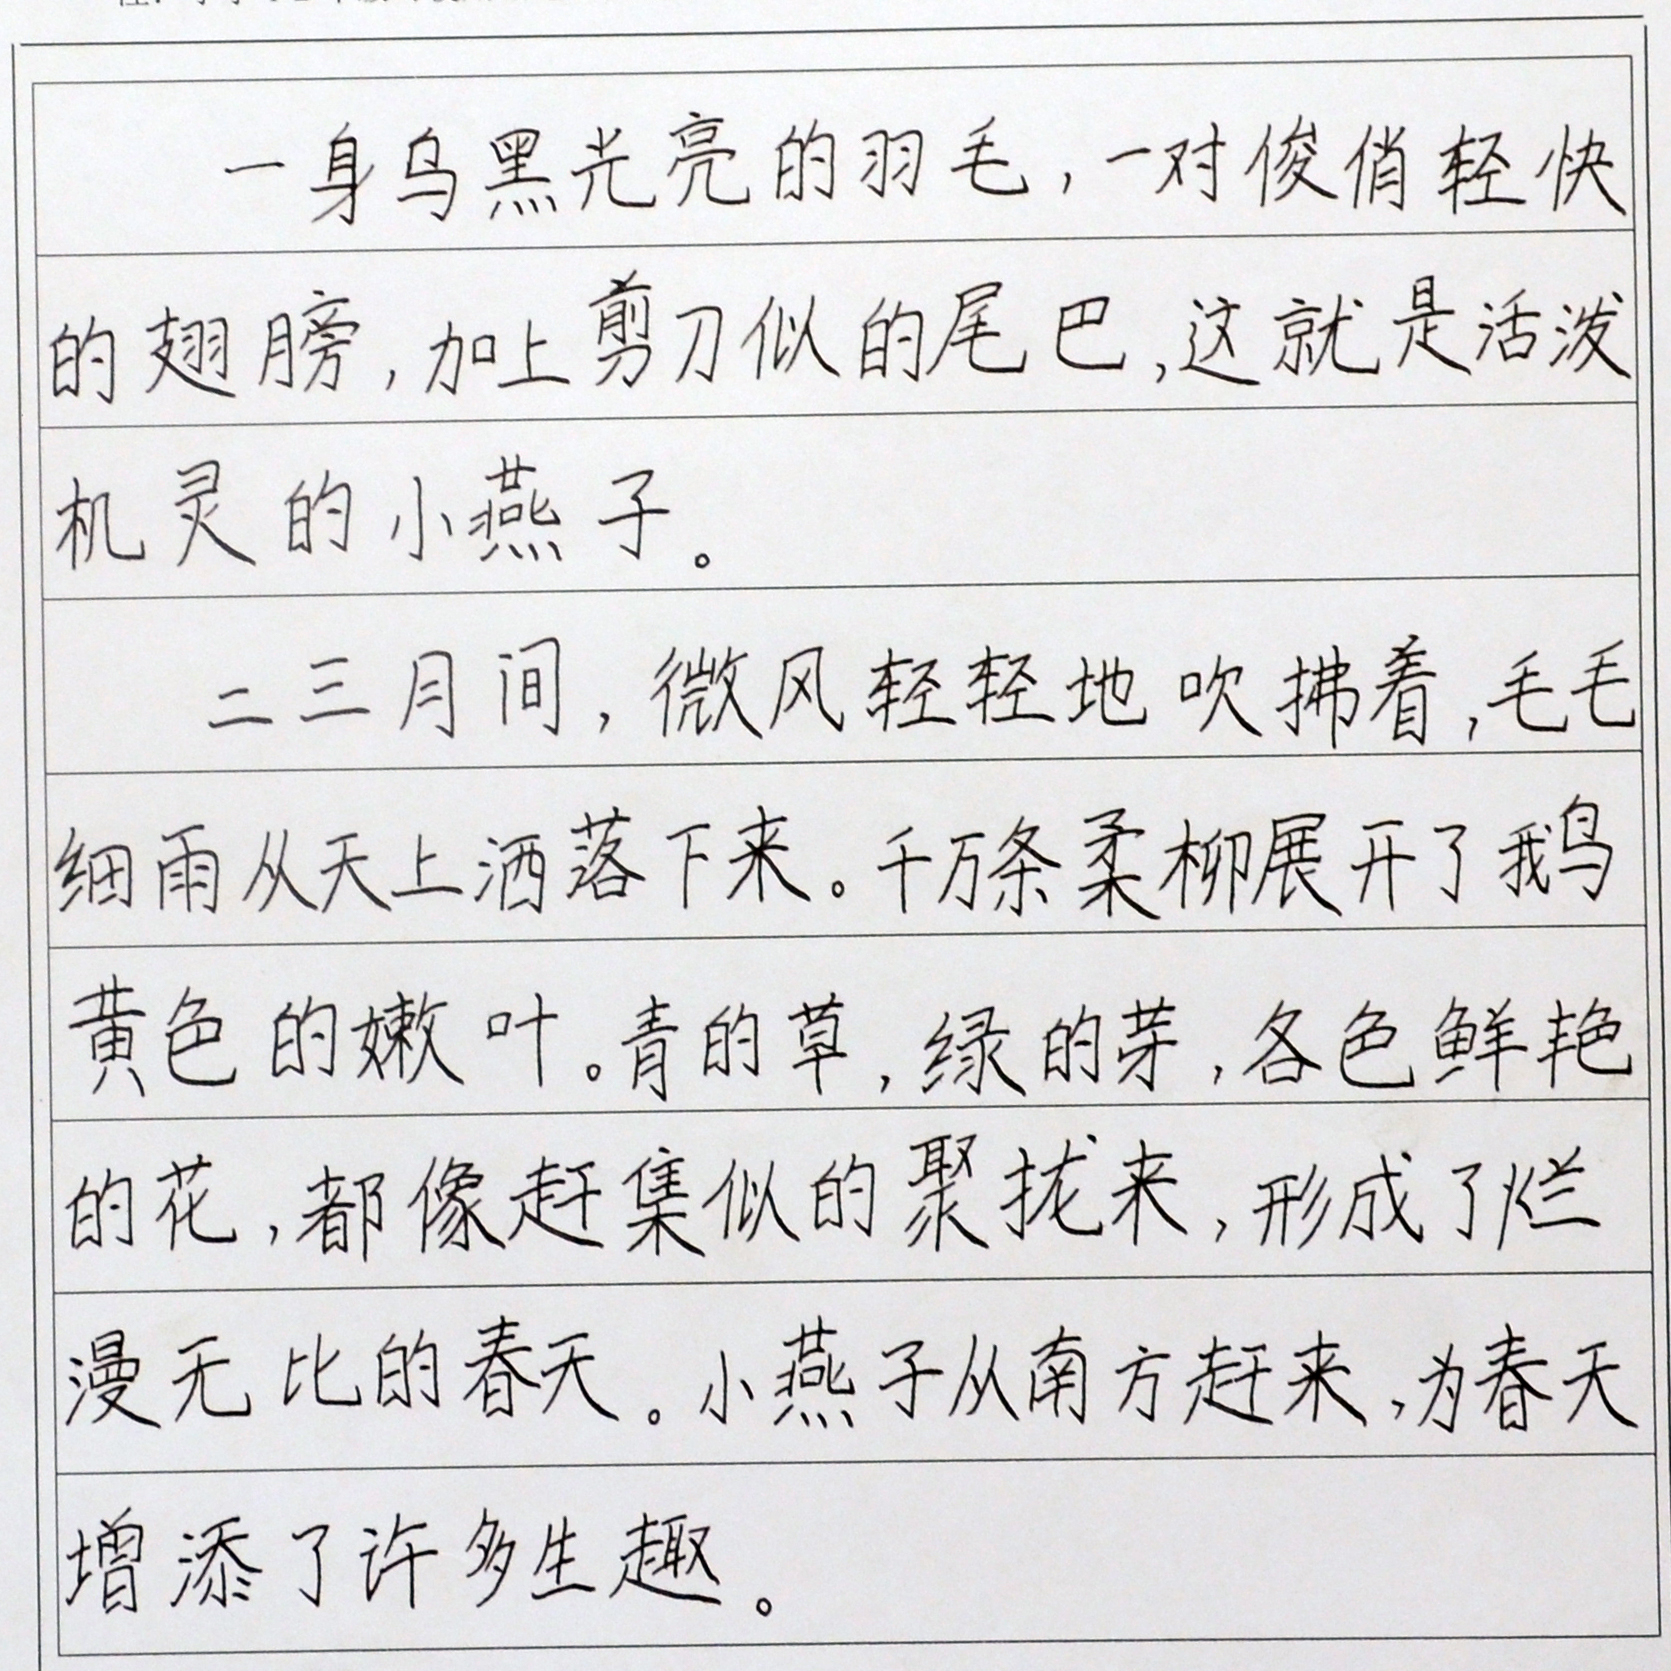 一身乌黑光亮的羽毛，一对俊俏轻快
的翅膀，加上剪刀似的尾巴，这就是活泼
机灵的小燕子。
二三月间，微风轻轻地吹拂着，毛毛
细雨从天上洒落下来。千万条柔柳展开了鹅
黄色的嫩叶。青的草，绿的芽，各色鲜艳
的花，都像赶集似的聚拢来，形成了烂
漫无比的春天。小燕子从南方赶来，为春天
增添了许多生趣。